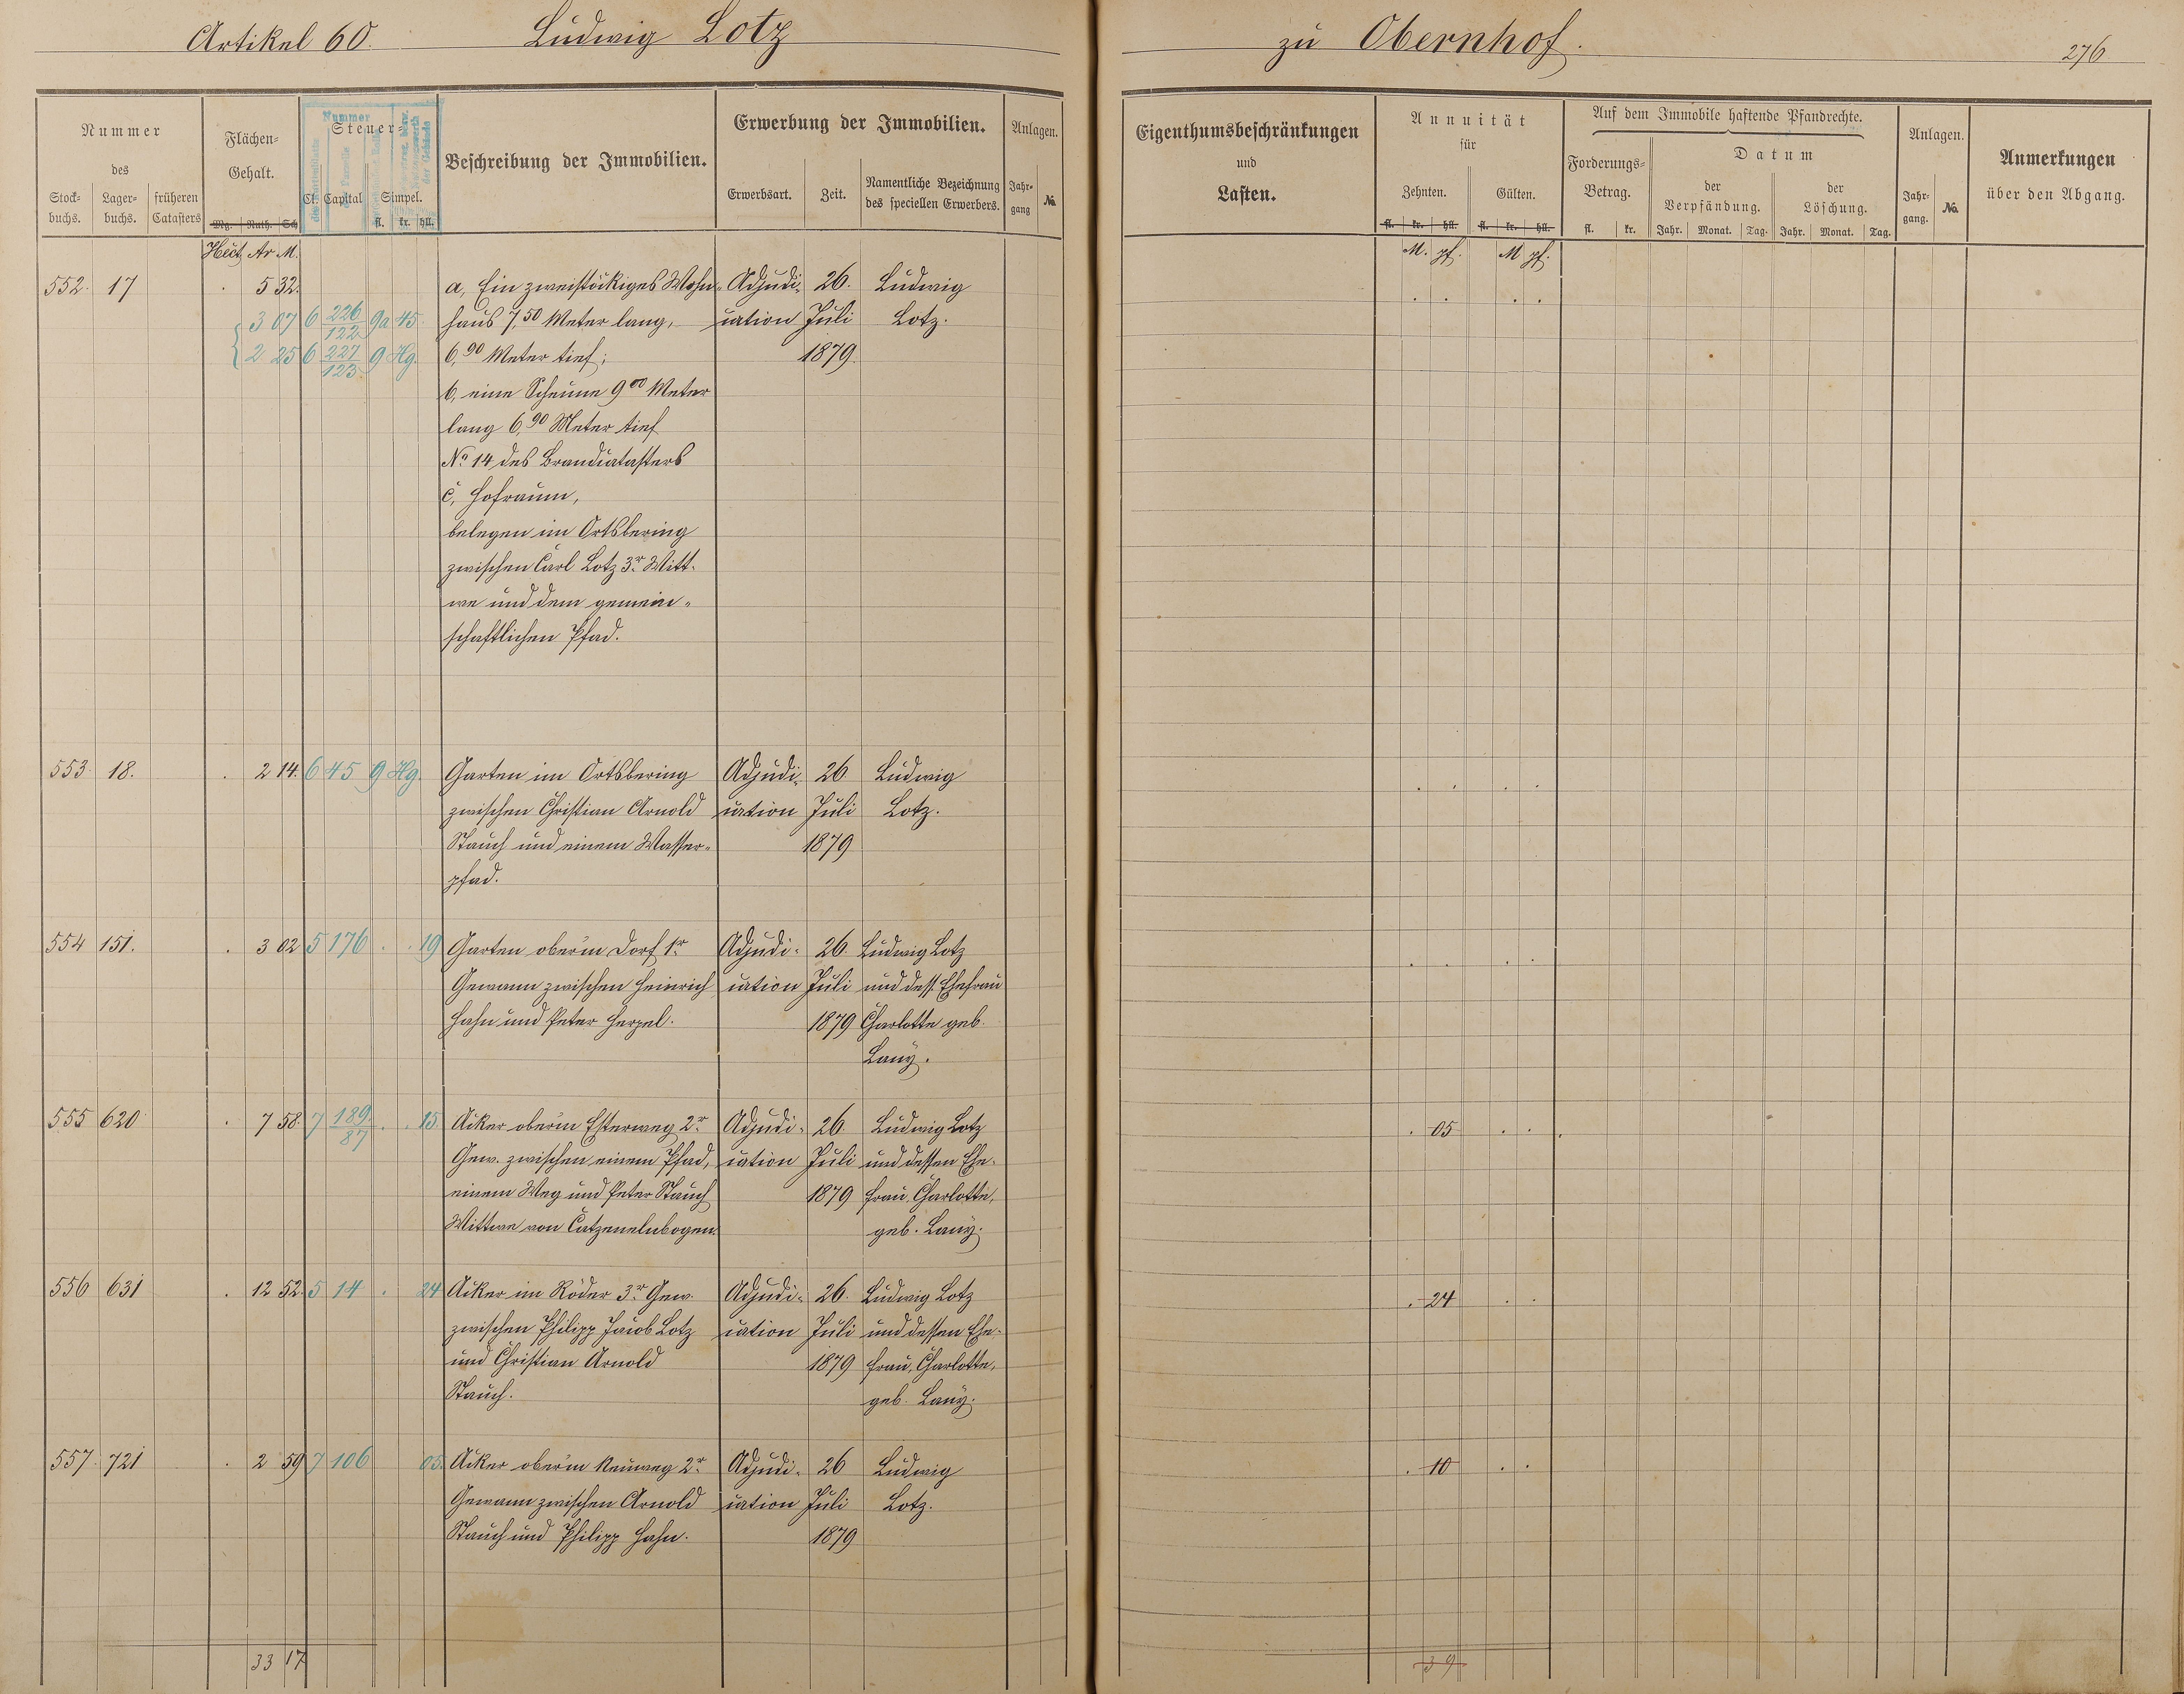 Artikel 60. Ludwig Lotz
zu Obernhof.
276
Nummer
des
Stock-
buchs.
Lager-
buchs.
früheren
Catasters
Flächen-
Gehalt.
Mg. Ruth. Sch
Hect Ar M.
Nummer
Steuer-
Cl. Capital
Simpel.
fl. kr. hll.
Beschreibung der Immobilien.
Erwerbung der Immobilien.
Erwerbsart.
Zeit.
Namentliche Bezeichnung
des speciellen Erwerbers.
Anlagen.
Jahr-
gang
No.
Eigenthumsbeschränkungen
und
Lasten.
Annuität
für
Zehnten.
Gülten.
fl. kr. hll. fl. kr. hll.
M. pf. M pf.
Auf dem Immobile haftende Pfandrechte.
Forderungs-
Betrag.
fl. kr.
Datum
der
Verpfändung.
Jahr. Monat. Tag.
der
Löschung.
Jahr. Monat. Tag.
Anlagen.
Jahr-
gang.
No.
Anmerkungen
über den Abgang.
552. 17 . 5 32. a, Ein zweistöckiges Wohn- Adjudi- 26. Ludwig
3 07 6 226/122 9a 45. haus 7,50 Meter lang, cation Juli Lotz.
2 25 6 227/123 9 Hg. 6,90 Meter tief; 1879.
b, eine Scheune 9 00 Meter
lang 6,90 Meter tief
No 14 des Brandcatasters
c, Hofraum,
belegen im Ortsbering
zwischen Carl Lotz 3r Witt-
we und dem gemein-
schaftlichen Pfad.
553. 18. . 2 14. 6 45 9 Hg. Garten im Ortsbering Adjudi- 26 Ludwig
zwischen Christian Arnold cation Juli Lotz.
Stauch und einem Wasser- 1879
pfad.
554 151. . 3 02 5 176 . . 19 Gartenober'm Dorf 1r Adjudi- 26. Ludwig Lotz
Gewann zwischen Heinrich cation Juli und dess. Ehefrau
Hahn und Peter Herpel. 1879 Charlotte geb.
Lany.
555 620 . 7 58. 7 189/87 . . 15. Acker ober'm Esterweg 2r Adjudi- 26. Ludwig Lotz . 05 . .
Gew. zwischen einem Pfad, cation Juli und dessen Ehe-
einem Weg und Peter Stauch 1879 frau, Charlotte,
Wittwe von Catzenelnbogen. geb. Lany.
556 631 . 12 52. 5 14 . 24 Acker im Röder 3r Gew. Adjudi- 26. Ludwig Lotz . 24 . .
zwischen Philipp Jacob Lotz cation Juli und dessen Ehe-
und Christian Arnold 1879 frau, Charlotte,
Stauch. geb. Lany.
557. 721 . 2 59 7 106 05. Acker ober'm Neuweg 2r Adjudi- 26 Ludwig . 10 . .
Gewann zwischen Arnold cation Juli Lotz.
Stauch und Philipp Hahn. 1879
33 17
39